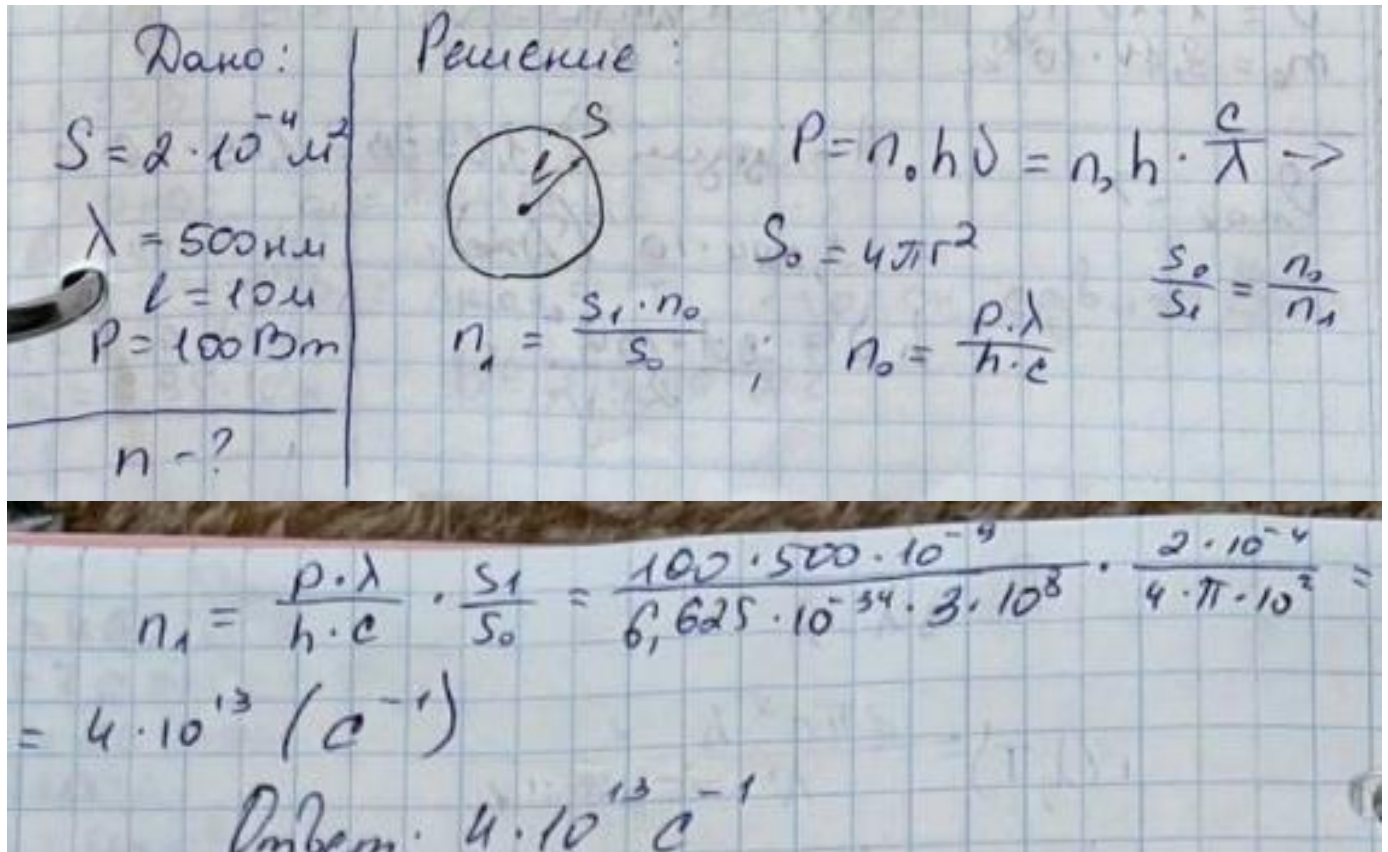 Дано:
S = 2 · 10⁻⁴ м²
λ = 500 нм
l = 10 м
P = 100 Вт
n - ?
Решение:
S
l
P = n₀hν = n₀h · c/λ →
S₀ = 4πr²
S₀/S₁ = n₀/n₁
n₁ = S₁ · n₀/S₀ ; n₀ = P·λ/h·c
n₁ = P·λ/h·c · S1/S₀ = 100 · 500 · 10⁻⁹/6,625 · 10⁻³⁴ · 3 · 10⁸ · 2 · 10⁻⁴/4 · π · 10² =
= 4 · 10¹³ (c⁻¹)
Ответ: 4 · 10¹³ c⁻¹